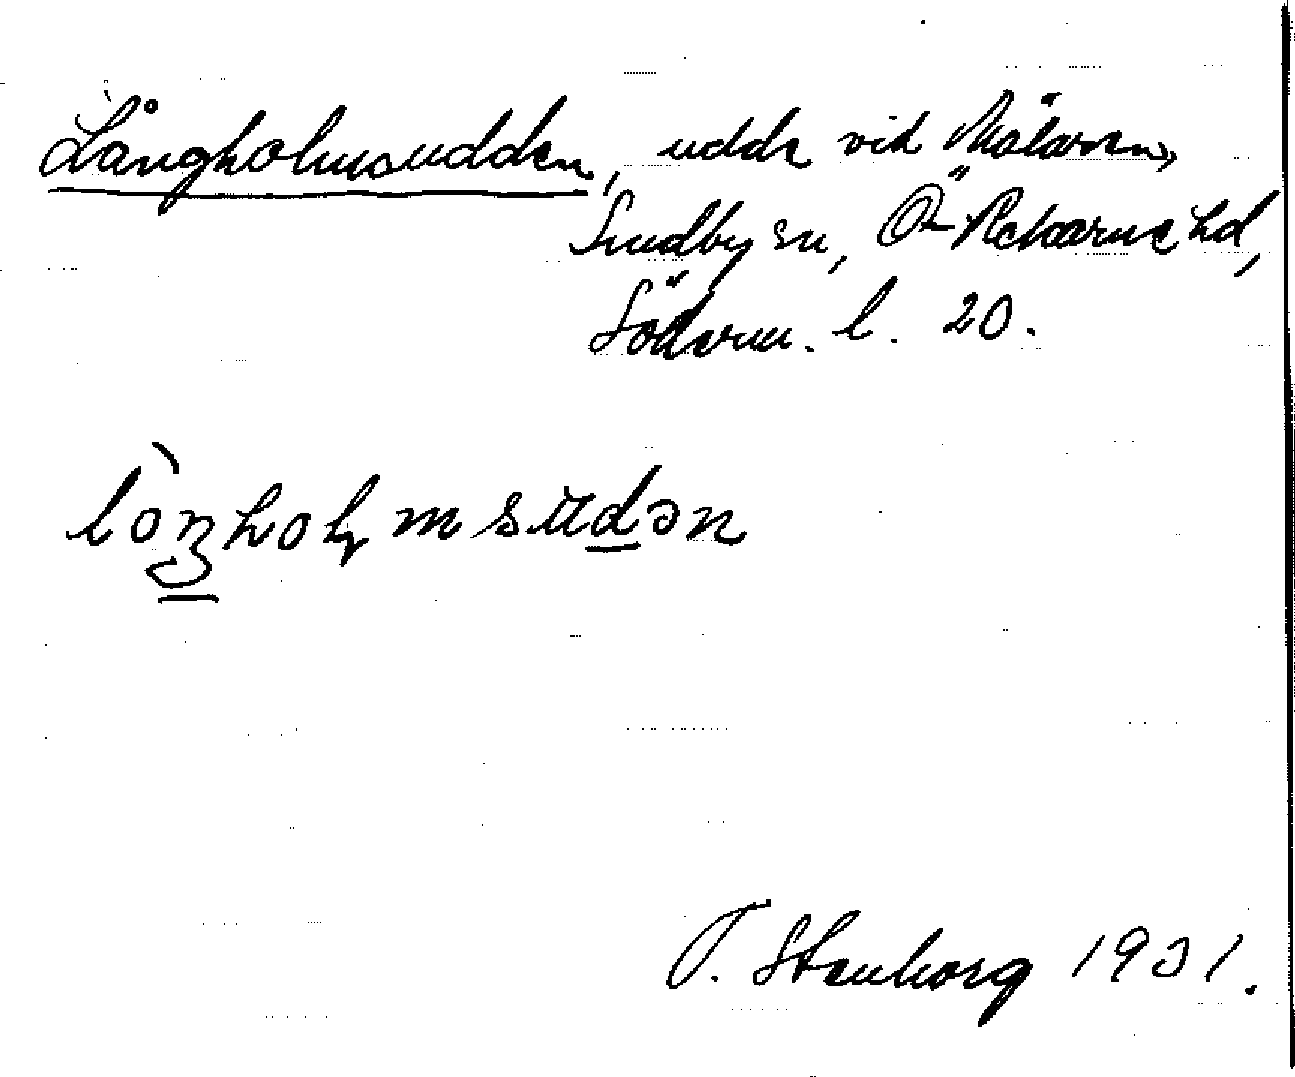 Långholmsudden, udde vid Mälaren,
Sundby sn, Ö-Rekarne hd,
Söderm. l. 20.
lòŋholmsudən
T. Stenborg 1931.